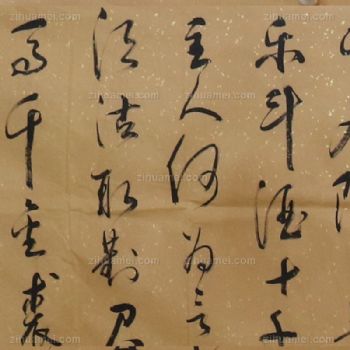 乐斗酒十千
主人何为言
须沽取对君
马千金裘
zihuamei.com